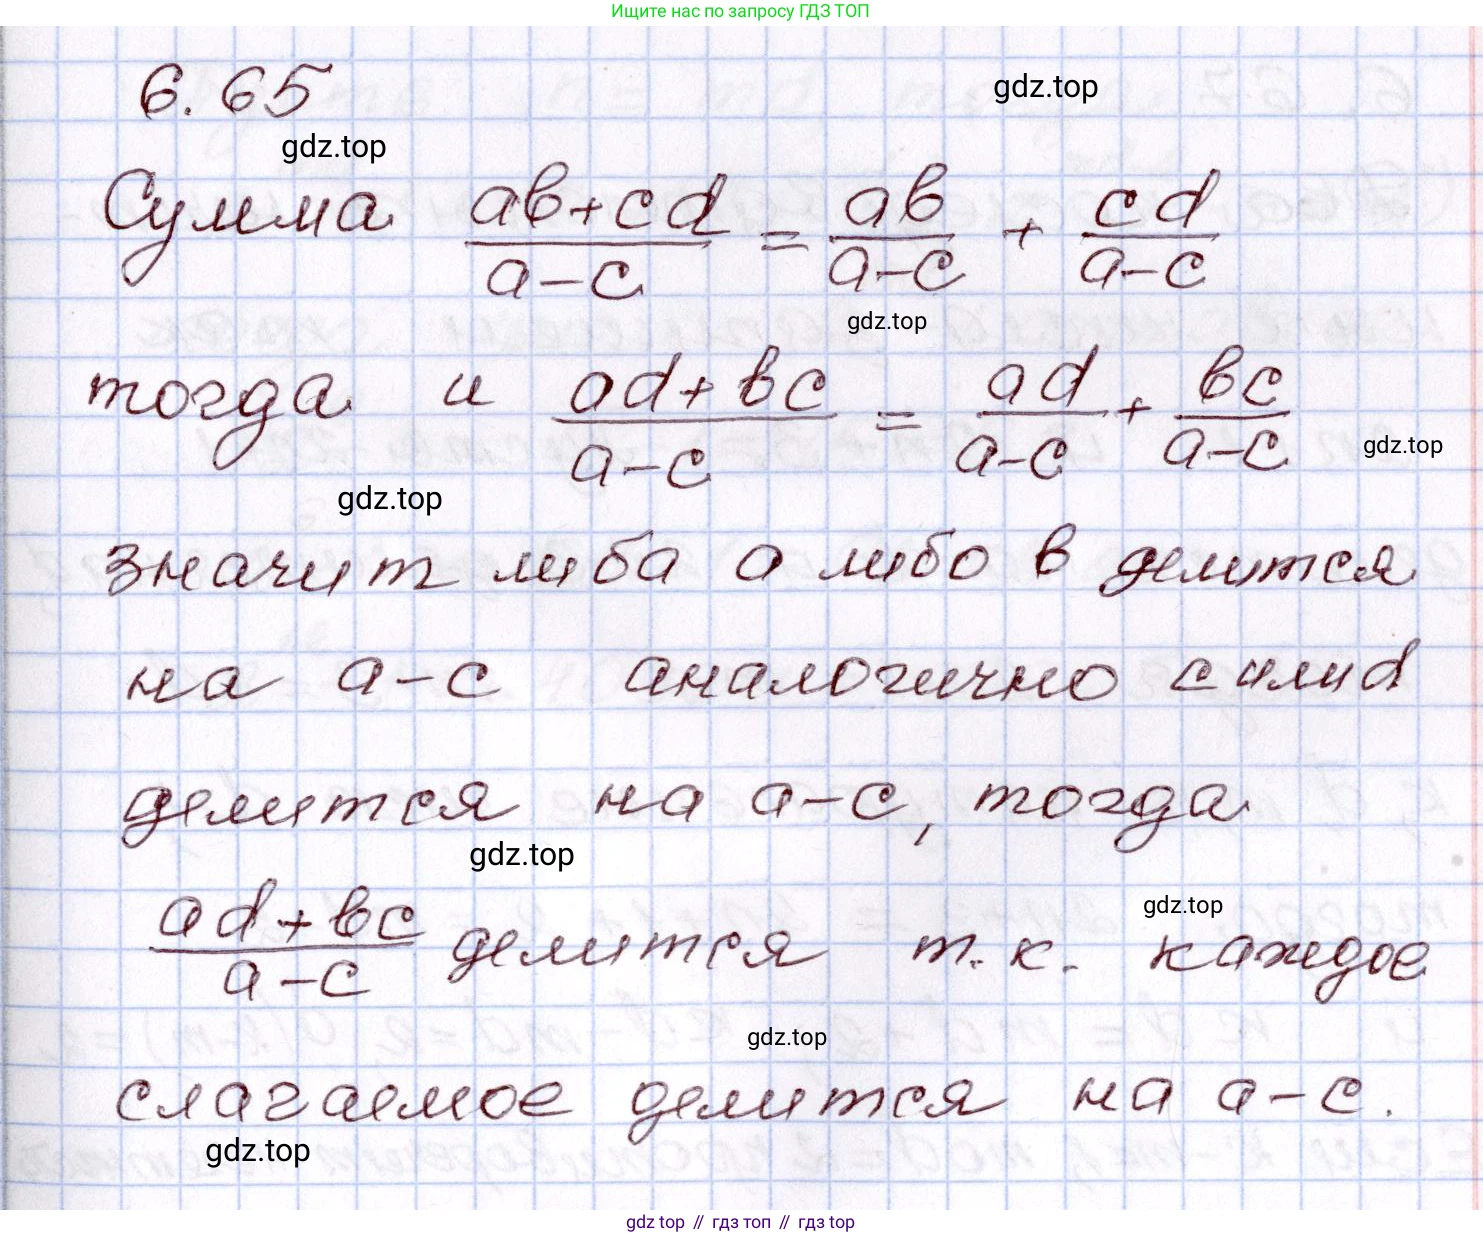 Ищите нас по запросу ГДЗ ТОП
6.65
gdz.top
gdz.top
Сумма (ab+cd)/(a-c) = ab/(a-c) + cd/(a-c)
gdz.top
тогда и (ad+bc)/(a-c) = ad/(a-c) + bc/(a-c)
gdz.top
gdz.top
значит либа a либо b делится
на a-c аналогично c или d
делится на a-c, тогда
gdz.top
gdz.top
(ad+bc)/(a-c) делится т.к. каждое
gdz.top
слагаемое делится на a-c.
gdz.top
gdz top // гдз топ // гдз top